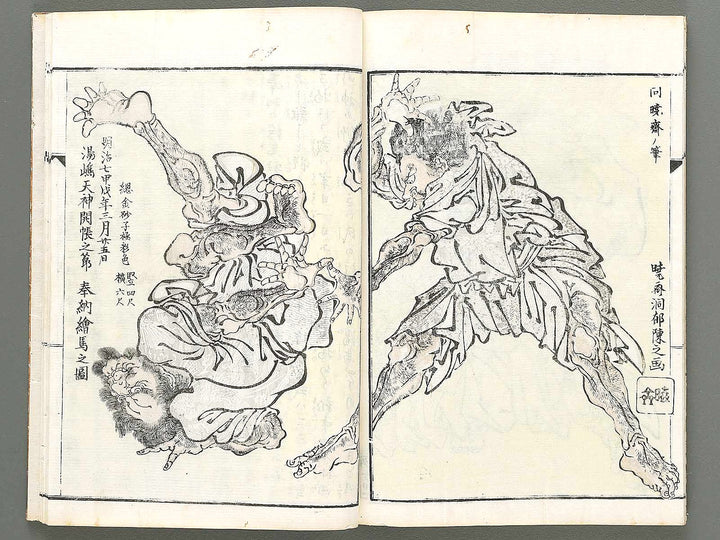 同暁齋ノ筆
暁斎洞郁陳之画
暁齋
總金砂子極彩色
竪四尺
横六尺
明治七甲戌年三月廿五日
湯嶋天神開帳之節 奉納繪馬之圖